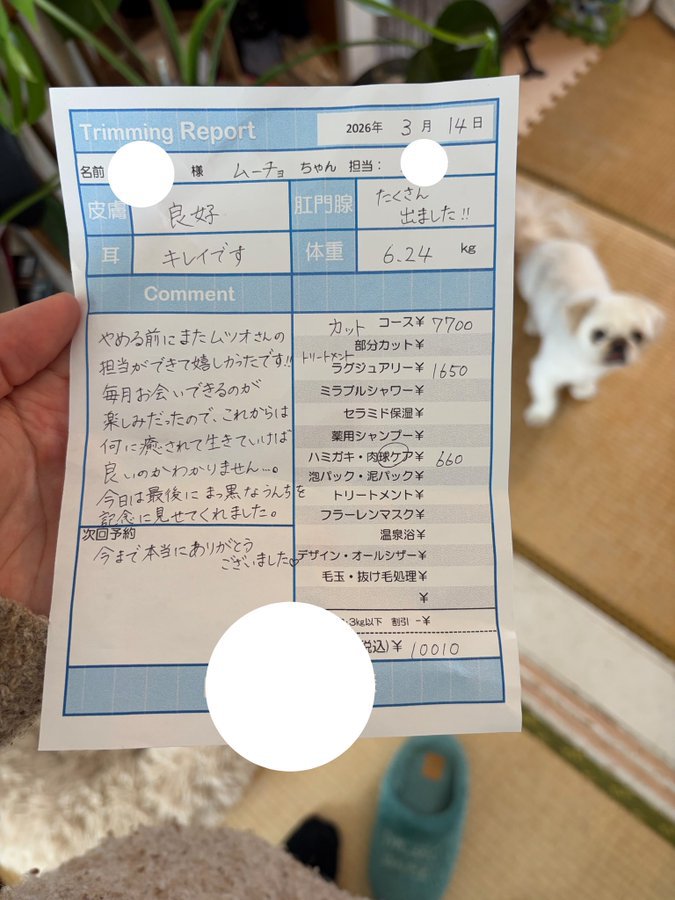 Trimming Report
2026年 3月 14日
名前 様 ムーチョ ちゃん 担当：
皮膚 良好
肛門腺 たくさん
出ました!!
耳 キレイです
体重 6.24 kg
Comment
やめる前にまたムツオさんの
担当ができて嬉しかったです!!
毎月お会いできるのが
楽しみだったので、これからは
何に癒されて生きていけば
良いのかわかりません…。
今日は最後にまっ黒なうんちを
記念に見せてくれました。
次回予約
今まで本当にありがとう
ございました♡
カット コース¥ 7700
部分カット¥
トリートメント
ラグジュアリー¥ 1650
ミラブルシャワー¥
セラミド保湿¥
薬用シャンプー¥
ハミガキ・肉球ケア¥ 660
泡パック・泥パック¥
トリートメント¥
フラーレンマスク¥
温泉浴¥
デザイン・オールシザー¥
毛玉・抜け毛処理¥
¥
3kg以下 割引 -¥
税込)¥ 10010